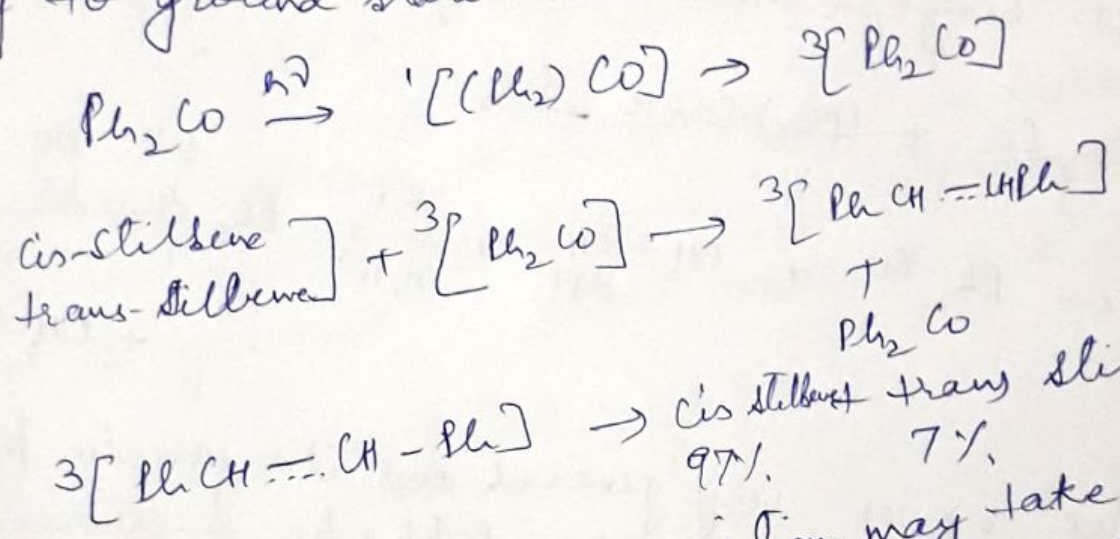 to ground
Ph₂CO hν → ¹[(Ph₂) CO] → ³[Ph₂CO]
cis-stilbene
trans-stilbene ] + ³[Ph₂CO] → ³[Ph CH ⩵ CHPh]
+
Ph₂CO
³[Ph CH ⩵ CH - Ph] → cis stilbene + trans sti
97% 7%
may take